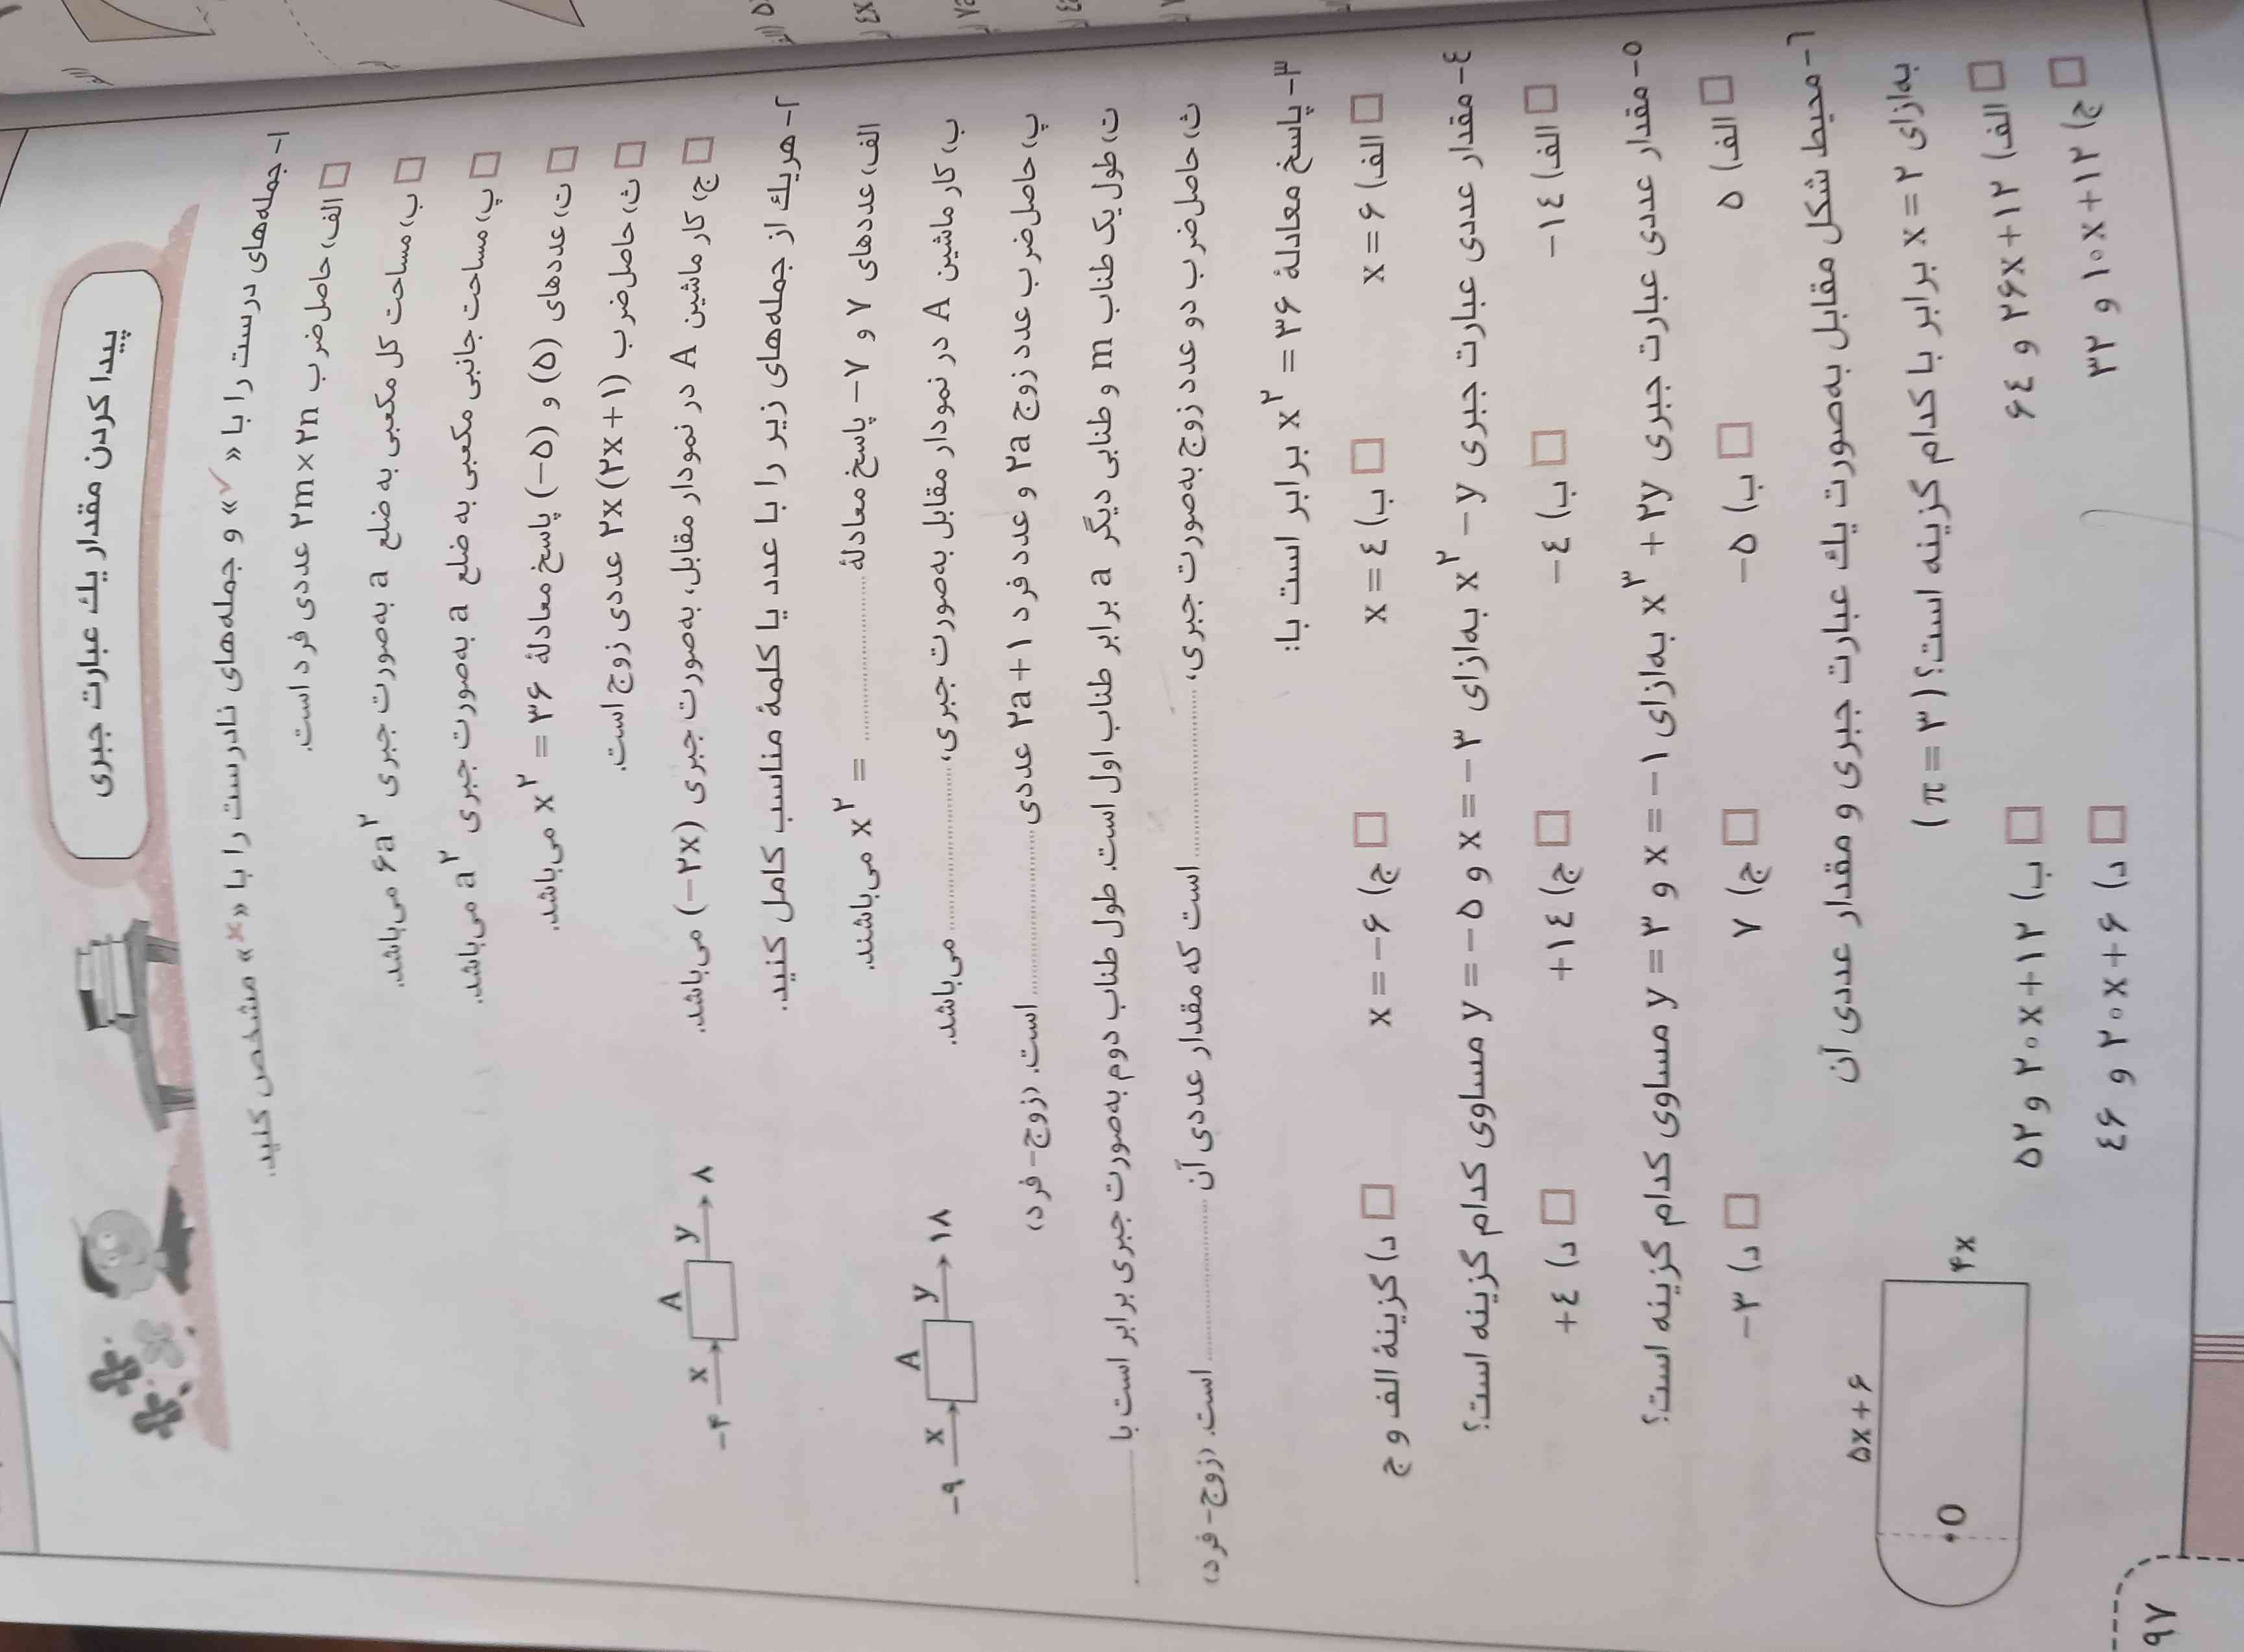 پیدا کردن مقدار یك عبارت جبری
۱- جمله‌های درست را با «✓» و جمله‌های نادرست را با «×» مشخص کنید.
الف) حاصل‌ضرب ۲m×۲n عددی فرد است.
ب) مساحت کل مکعبی به ضلع a به‌صورت جبری ۶a² می‌باشد.
پ) مساحت جانبی مکعبی به ضلع a به‌صورت جبری a² می‌باشد.
ت) عددهای (۵) و (−۵) پاسخ معادلهٔ x² = ۳۶ می‌باشد.
ث) حاصل‌ضرب ۲x(۲x+۱) عددی زوج است.
ج) کار ماشین A در نمودار مقابل، به‌صورت جبری (−۲x) می‌باشد.
−۴ x A y ۸
۲- هریك از جمله‌های زیر را با عدد یا کلمهٔ مناسب کامل کنید.
الف) عددهای ۷ و ۷− پاسخ معادلهٔ .............. = x² می‌باشند.
ب) کار ماشین A در نمودار مقابل به‌صورت جبری، .............. می‌باشد.
−۹ x A y ۱۸
پ) حاصل‌ضرب عدد زوج ۲a و عدد فرد ۲a+۱ عددی .............. است. (زوج- فرد)
ت) طول یک طناب m و طنابی دیگر a برابر طناب اول است. طول طناب دوم به‌صورت جبری برابر است با ..............
ث) حاصل‌ضرب دو عدد زوج به‌صورت جبری، .............. است که مقدار عددی آن .............. است. (زوج- فرد)
۳- پاسخ معادلهٔ x² = ۳۶ برابر است با:
الف) x = ۶
ب) x = ٤
ج) x = −۶
د) گزینهٔ الف و ج
٤- مقدار عددی عبارت جبری x² − y به‌ازای x = −۳ و y = −۵ مساوی کدام گزینه است؟
الف) −۱٤
ب) −٤
ج) +۱٤
د) +٤
۵- مقدار عددی عبارت جبری x³ + ۲y به‌ازای x = −۱ و y = ۳ مساوی کدام گزینه است؟
الف) ۵
ب) −۵
ج) ۷
د) −۳
۶- محیط شکل مقابل به‌صورت یك عبارت جبری و مقدار عددی آن
به‌ازای x = ۲ برابر با کدام گزینه است؟ (π = ۳)
الف) ۲۶x+۱۲ و ۶٤
ب) ۲۰x+۱۲ و ۵۲
ج) ۱۰x+۱۲ و ۳۲
د) ۲۰x+۶ و ٤۶
۵x+۶
۴x
O
۹۷